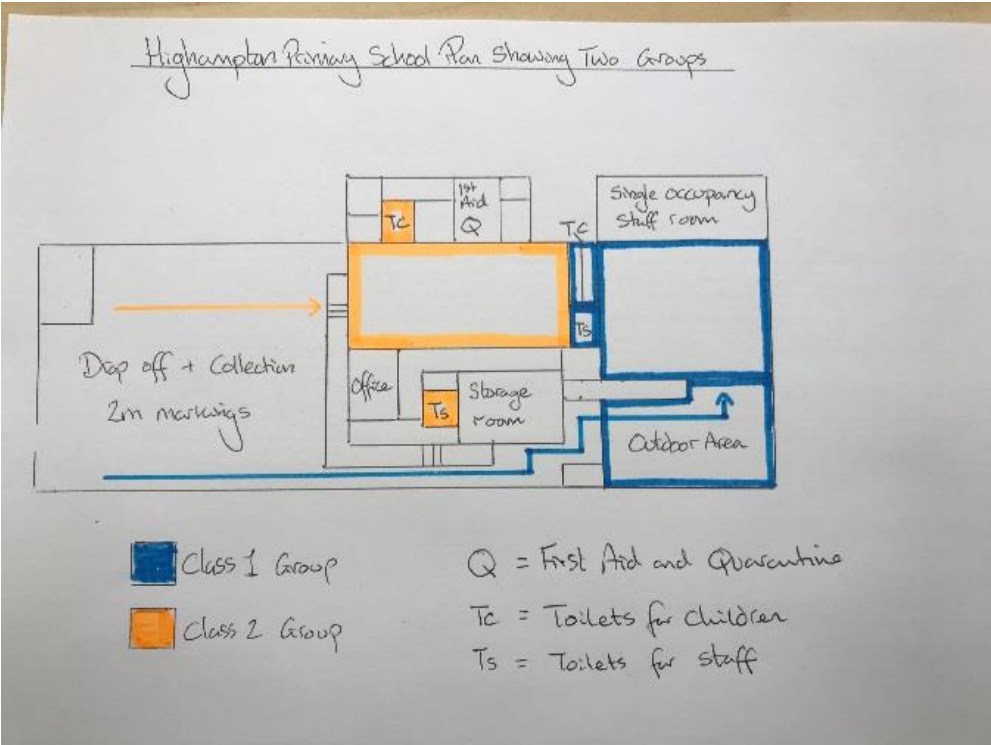 Highampton Primary School Plan Showing Two Groups
1st
Aid
Q
Single occupancy
Staff room
Tc
TC
Ts
Drop off + Collection
2m markings
Office
Ts
Storage
room
Outdoor Area
Class 1 Group
Class 2 Group
Q = First Aid and Quarantine
Tc = Toilets for Children
Ts = Toilets for staff